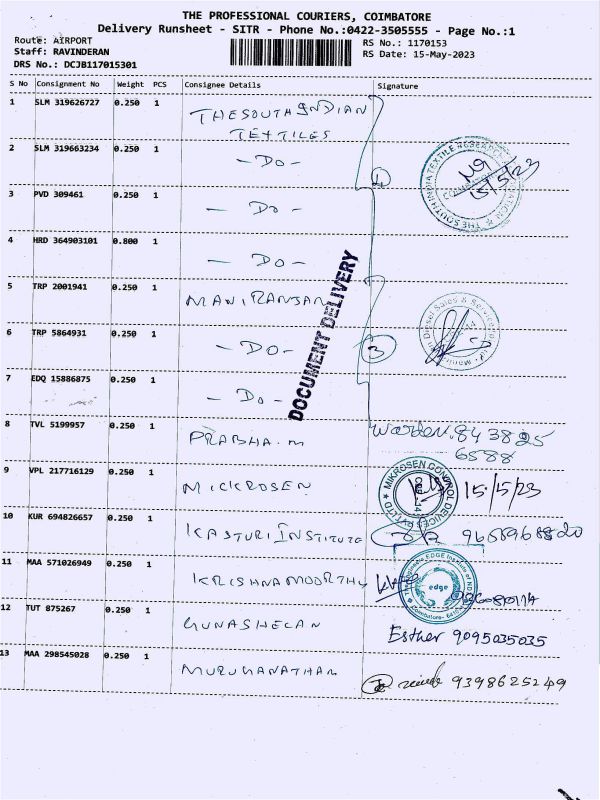 THE PROFESSIONAL COURIERS, COIMBATORE
Delivery Runsheet - SITR - Phone No.:0422-3505555 - Page No.:1
Route: AIRPORT
RS No.: 1170153
Staff: RAVINDERAN
RS Date: 15-May-2023
DRS No.: DCJB117015301
S No Consignment No Weight PCS Consignee Details Signature
1 SLM 319626727 0.250 1 THE SOUTH INDIAN
TEXTILES
2 SLM 319663234 0.250 1 - DO -
4
15/5/23
3 PVD 309461 0.250 1 - DO -
4 HRD 364903101 0.800 1 - DO -
DOCUMENT DELIVERY
5 TRP 2001941 0.250 1 MANIRANJAN
6 TRP 5864931 0.250 1 - DO - 3
7 EDQ 15886875 0.250 1 - DO -
8 TVL 5199957 0.250 1 PRABHA. M Warden. 843825
6588
9 VPL 217716129 0.250 1 MICKROSEN MIKROSEN CONTROL DEVICES PVT LTD 15/5/23
10 KUR 694826657 0.250 1 KASTURI INSTITUTE
11 MAA 571026949 0.250 1 KRISHNAMOORTHY edge
12 TUT 875267 0.250 1 GUNASHELAN Esther 9095035035
13 MAA 298545028 0.250 1 MURUGANATHAN 9398625249